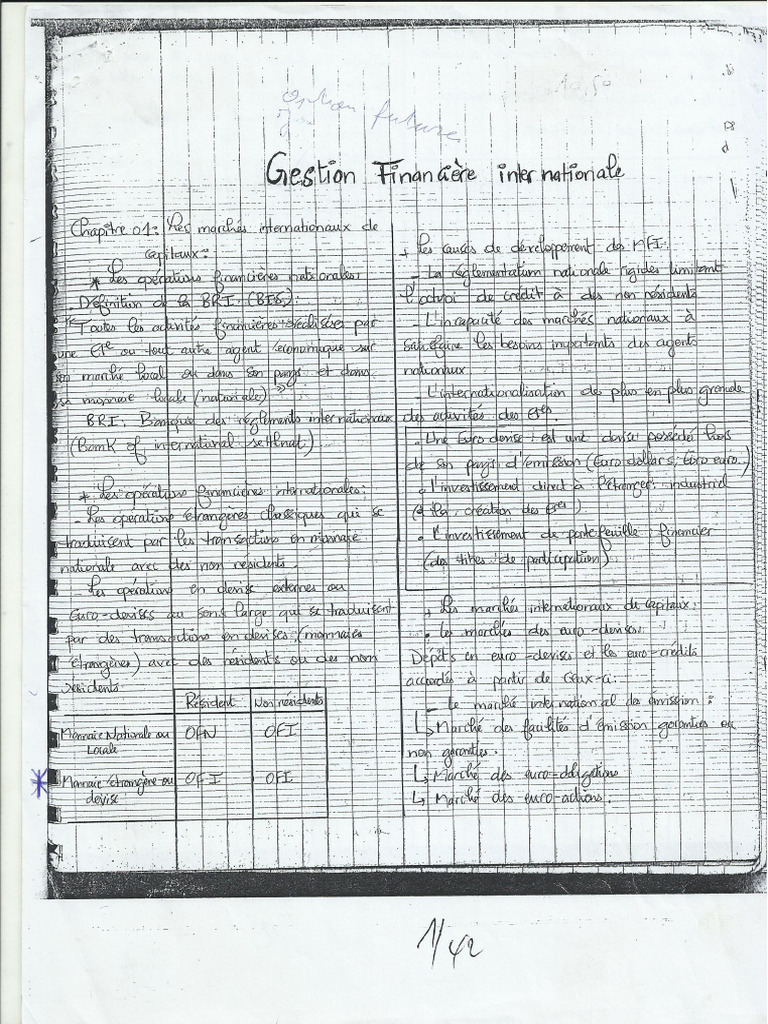 Option future
10,50
Gestion Financière internationale
Chapitre 01: Les marchés internationaux de
capitaux:
* Les opérations financières nationales:
Définition de la BRI: (BIS):
"Toutes les activités financières réalisées par
une Etse ou tout autre agent économique sur
son marché local ou dans son pays et dans
sa monnaie locale (nationale)"
BRI: Banque des règlements internationaux
(Bank of international
* Les opérations financières internationales:
- Les opérations étrangères classiques qui se
traduisent par les transactions en monnaie
nationale avec des non résidents.
- Les opérations en devise externes ou
Euro-devises au sens large qui se traduisent
par des transactions en devises (monnaies
étrangères) avec des résidents ou des non
résidents
Résident Non résidents
Monnaie Nationale ou Locale OFN OFI
* Monnaie étrangère ou devise OFI OFI
+ Les causes de développement des MFI:
- La réglementation nationale rigides limitant
l'octroi de crédit à des non résidents
- L'incapacité des marchés nationaux à
satisfaire les besoins importants des agents
nationaux
- L'internationalisation de plus en plus grande
des activités des Etses.
. Une Euro devise: est une devise possédé hors
de son pays d'émission (Euro dollars, Euro euro.)
. l'investissement direct à l'étranger: industriel
(la création des Etses)
. l'investissement de portefeuille: financier
(des titres de participation)
+ Les marchés internationaux de capitaux:
. Les marchés des euro-devises:
Dépôts en euro-devises et les euro-crédits
accordés à partir de ceux-ci.
- le marché international des émission:
↳ Marché des facilités d'émission garanties ou
non garanties.
↳ Marché des euro-obligations
↳ Marché des euro-actions.
1/42